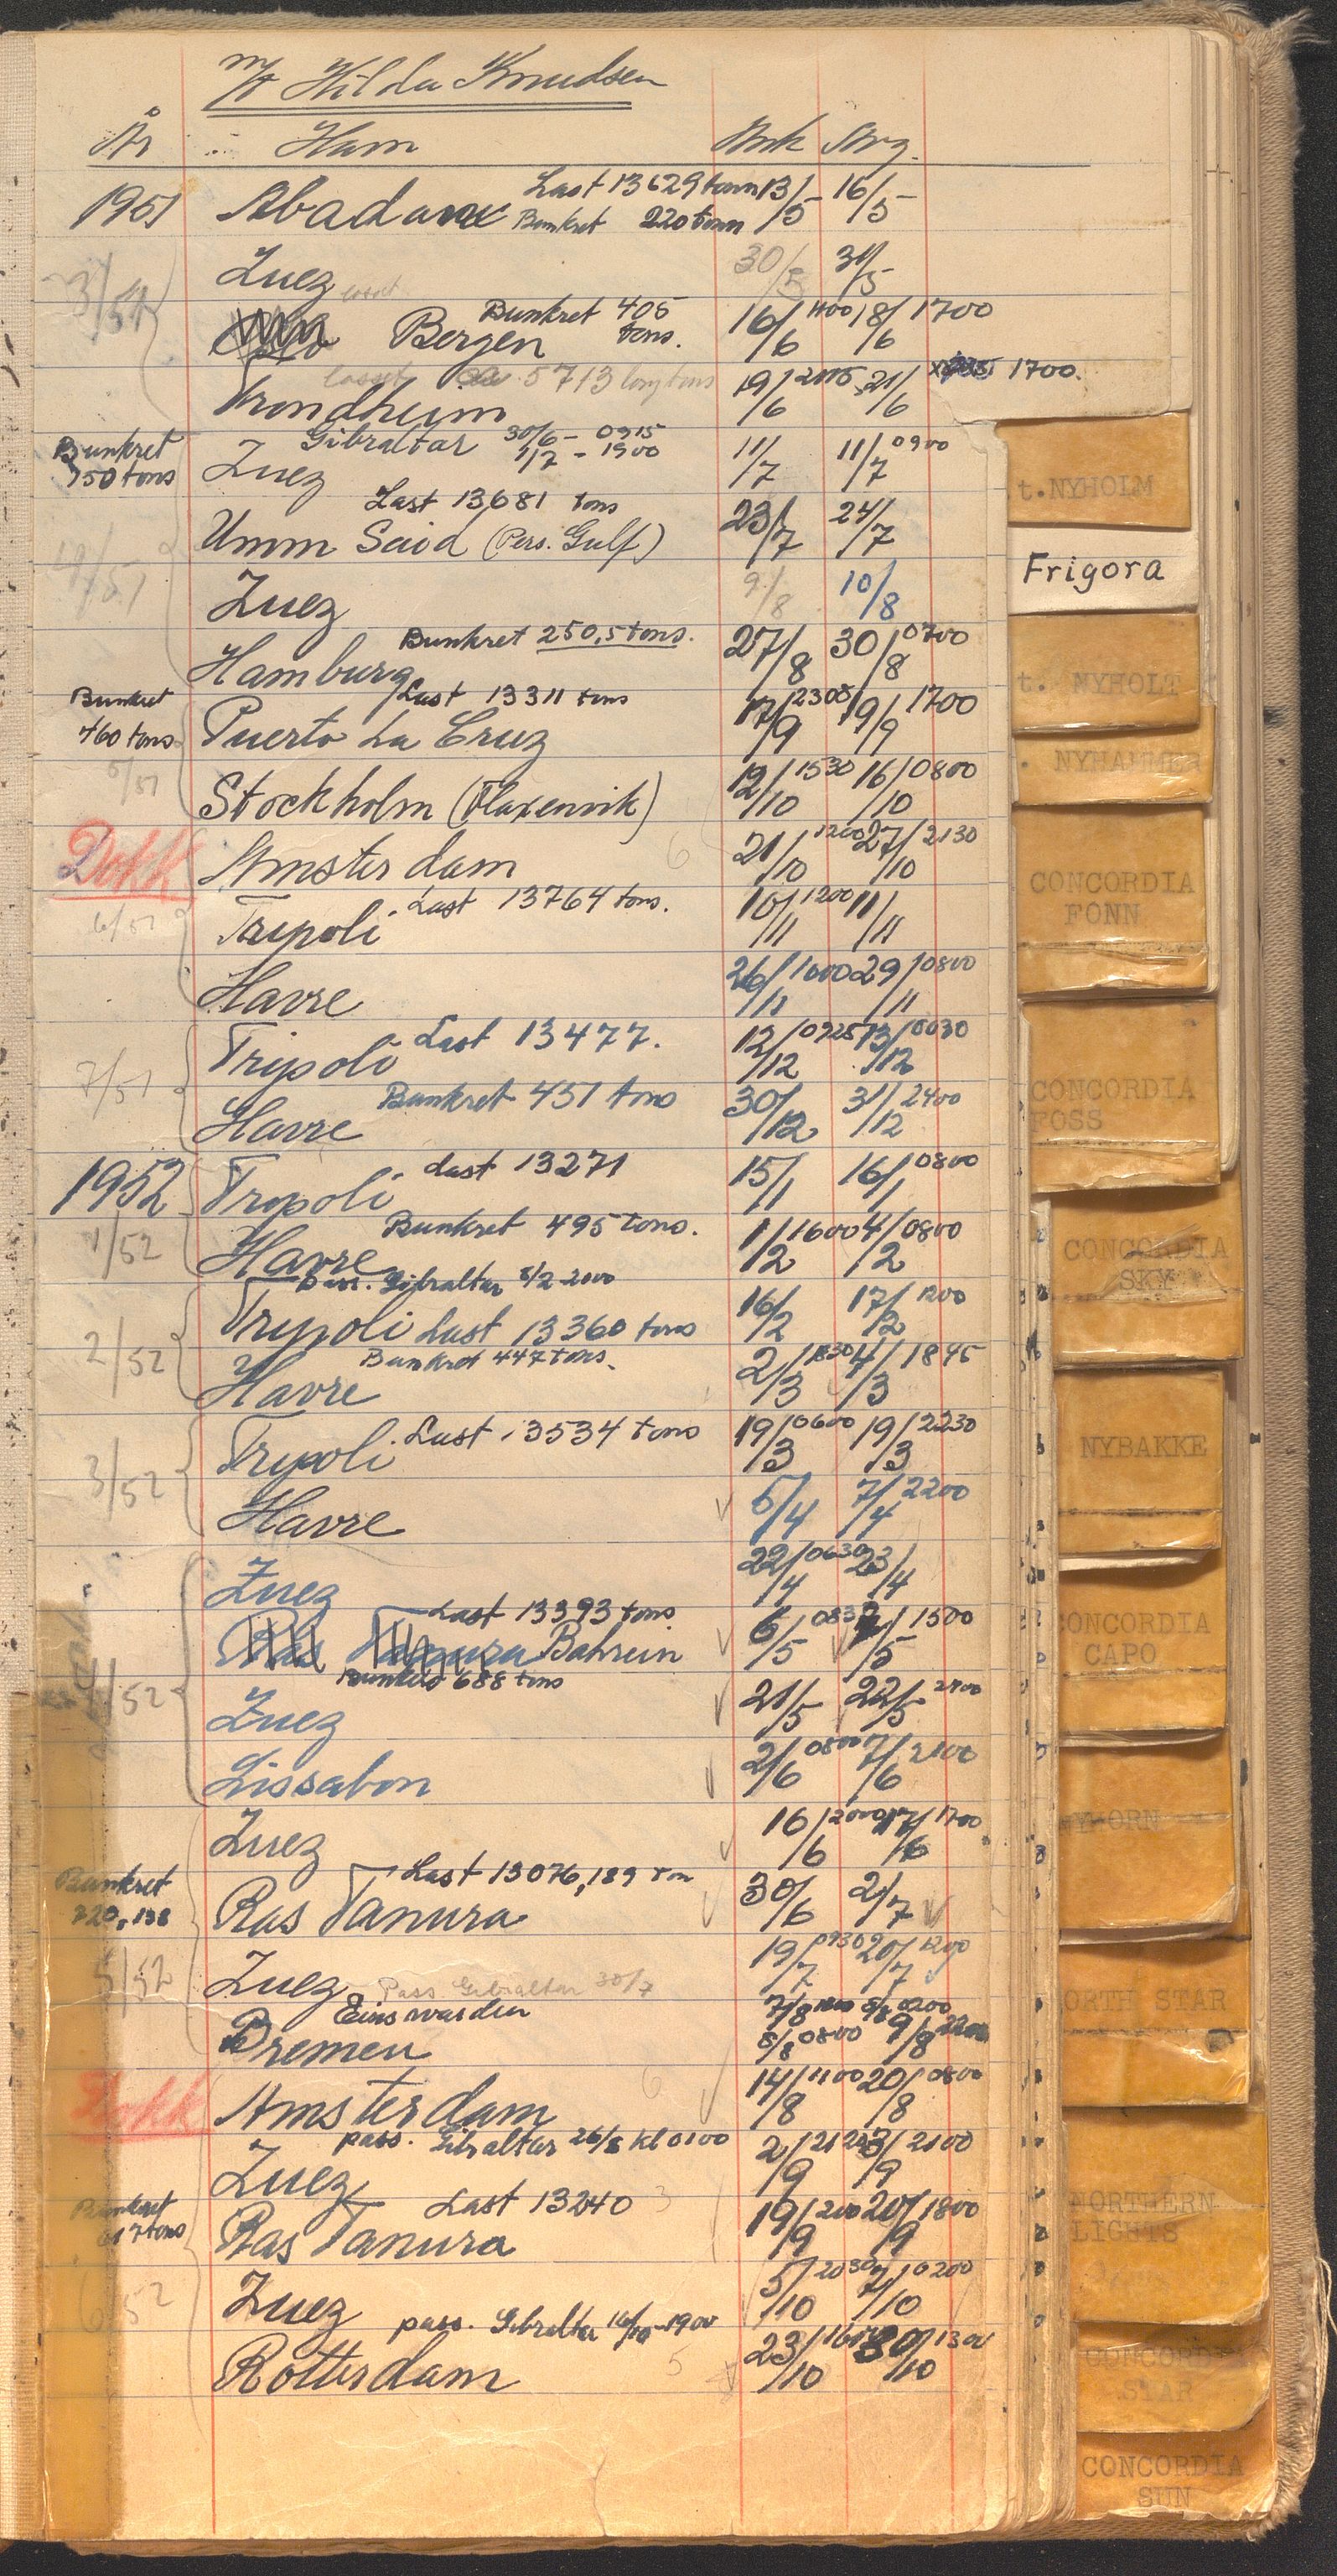 M/T Hilda Knudsen
År Havn Ank Avg.
1951 Abadan Last 13629 tonn 13/5 16/5
Bunkret 220 tonn
Zuez 30/5 31/5
3/51
Bergen Bunkret 405 tons. 16/6 1400 18/6 1700
Losset 5713 longtons
Trondheim 19/6 21/6 1700.
Gibraltar 30/6 - 0915
1/7 - 1900
Bunkret 750 tons Zuez 11/7 11/7 0900
Last 13681 tons
Umm Said (Pers. Gulf) 23/7 24/7
Zuez 9/8 10/8
Bunkret 250,5 tons.
Hamburg 27/8 30/8 0700
Last 13311 tons
Bunkret 460 tons Puerto La Cruz 17/9 2305 19/9 1700
5/51
Stockholm (Flaxenvik) 12/10 1530 16/10 0800
Dokk Amsterdam 6 21/10 1200 27/10 2130
Last 13764 tons.
6/51 Tripoli 10/11 1200 11/11
Havre 26/11 1000 29/11 0800
Last 13477.
Tripoli 12/12 0725 13/12 0030
7/51
Bunkret 451 tons
Havre 30/12 31/12 2400
Last 13271
1952 Tripoli 15/1 16/1 0800
Bunkret 495 tons.
1/52 Havre 1/2 1600 4/2 0800
Pass. Gibraltar 8/2 2000
Tripoli Last 13360 tons 16/2 17/2 1200
2/52
Bunkret 447 tons.
Havre 2/3 1830 4/3 1845
Last 13534 tons
Tripoli 19/3 0600 19/3 2230
3/52
Havre 5/4 7/4 2200
Zuez 22/4 0630 23/4
Last 13393 tons
Ras Tanura Bahrein 6/5 7/5 1500
4/52
Bunkers 688 tons
Zuez 21/5 22/5 2400
Lissabon 2/6 0800 7/6 2100
Zuez 16/6 2000 17/6 1700
Last 13076,189 ton
Bunkret 720,138 Ras Tanura 30/6 2/7
5/52 Zuez Pass Gibraltar 30/7 19/7 0930 20/7 1200
Einswarden 7/8 8/8 0200
Bremen 8/8 0800 9/8 2200
Dokk Amsterdam 6 14/8 1100 20/8 0800
pass. Gibraltar 26/8 kl 0100
Zuez 2/9 3/9 2100
Last 13240 3
Bunkret 617 tons Ras Tanura 19/9 20/9 1800
6/52 Zuez 5/10 2030 7/10 0200
pass. Gibraltar 16/10 - 1900
Rotterdam 5 23/10 30/10
t. NYHOLM
Frigora
t. NYHOLT
. NYHAMMER
CONCORDIA
FONN
CONCORDIA
FOSS
CONCORDIA
SKY
NYBAKKE
CONCORDIA
CAPO
NYHORN
NORTH STAR
NORTHERN
LIGHTS
CONCORDIA
STAR
CONCORDIA
SUN